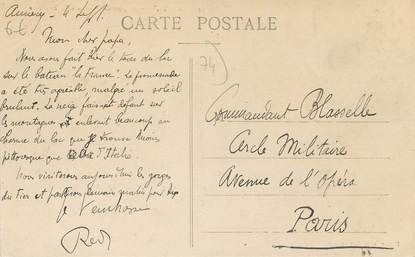 CARTE POSTALE
Annecy - 4 Sept.
Mon cher papa,
Nous avons fait hier le tour du lac
sur le bateau "la France". La promenade
a été très agréable, malgré un soleil
brulant. La neige faisant défaut sur
les montagnes enlevait beaucoup au
charme du lac que je trouve moins
pittoresque que d'Italie
Nous visiterons aujourd'hui les gorges
du Fier et partirons demain
Je t'embrasse
74
Commandant Blasselle
Cercle Militaire
Avenue de l'Opéra
Paris